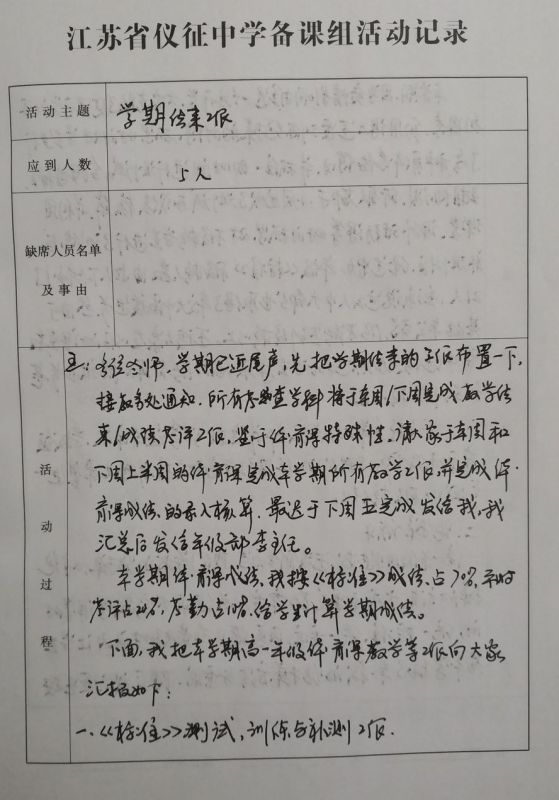 江苏省仪征中学备课组活动记录
活动主题
学期结束工作
应到人数
5人
缺席人员名单
及事由
活动过程
王：各位老师，学期已近尾声，先把学期结束的工作布置一下，
接教务处通知，所有考查学科将于本周/下周完成教学结
束/成绩考评工作，鉴于体育课特殊性，请大家于本周和
下周上半周的体育课完成本学期所有教学工作，并完成体
育课成绩的录入核算，最迟于下周五完成发给我，我
汇总后发给年级部李主任。
本学期体育课成绩，我按《标准》成绩占70%，平时
考评占20%，考勤占10%给学生计算学期成绩。
下面，我把本学期高一年级体育课教学等工作向大家
汇报如下：
一、《标准》测试，训练与补测工作.